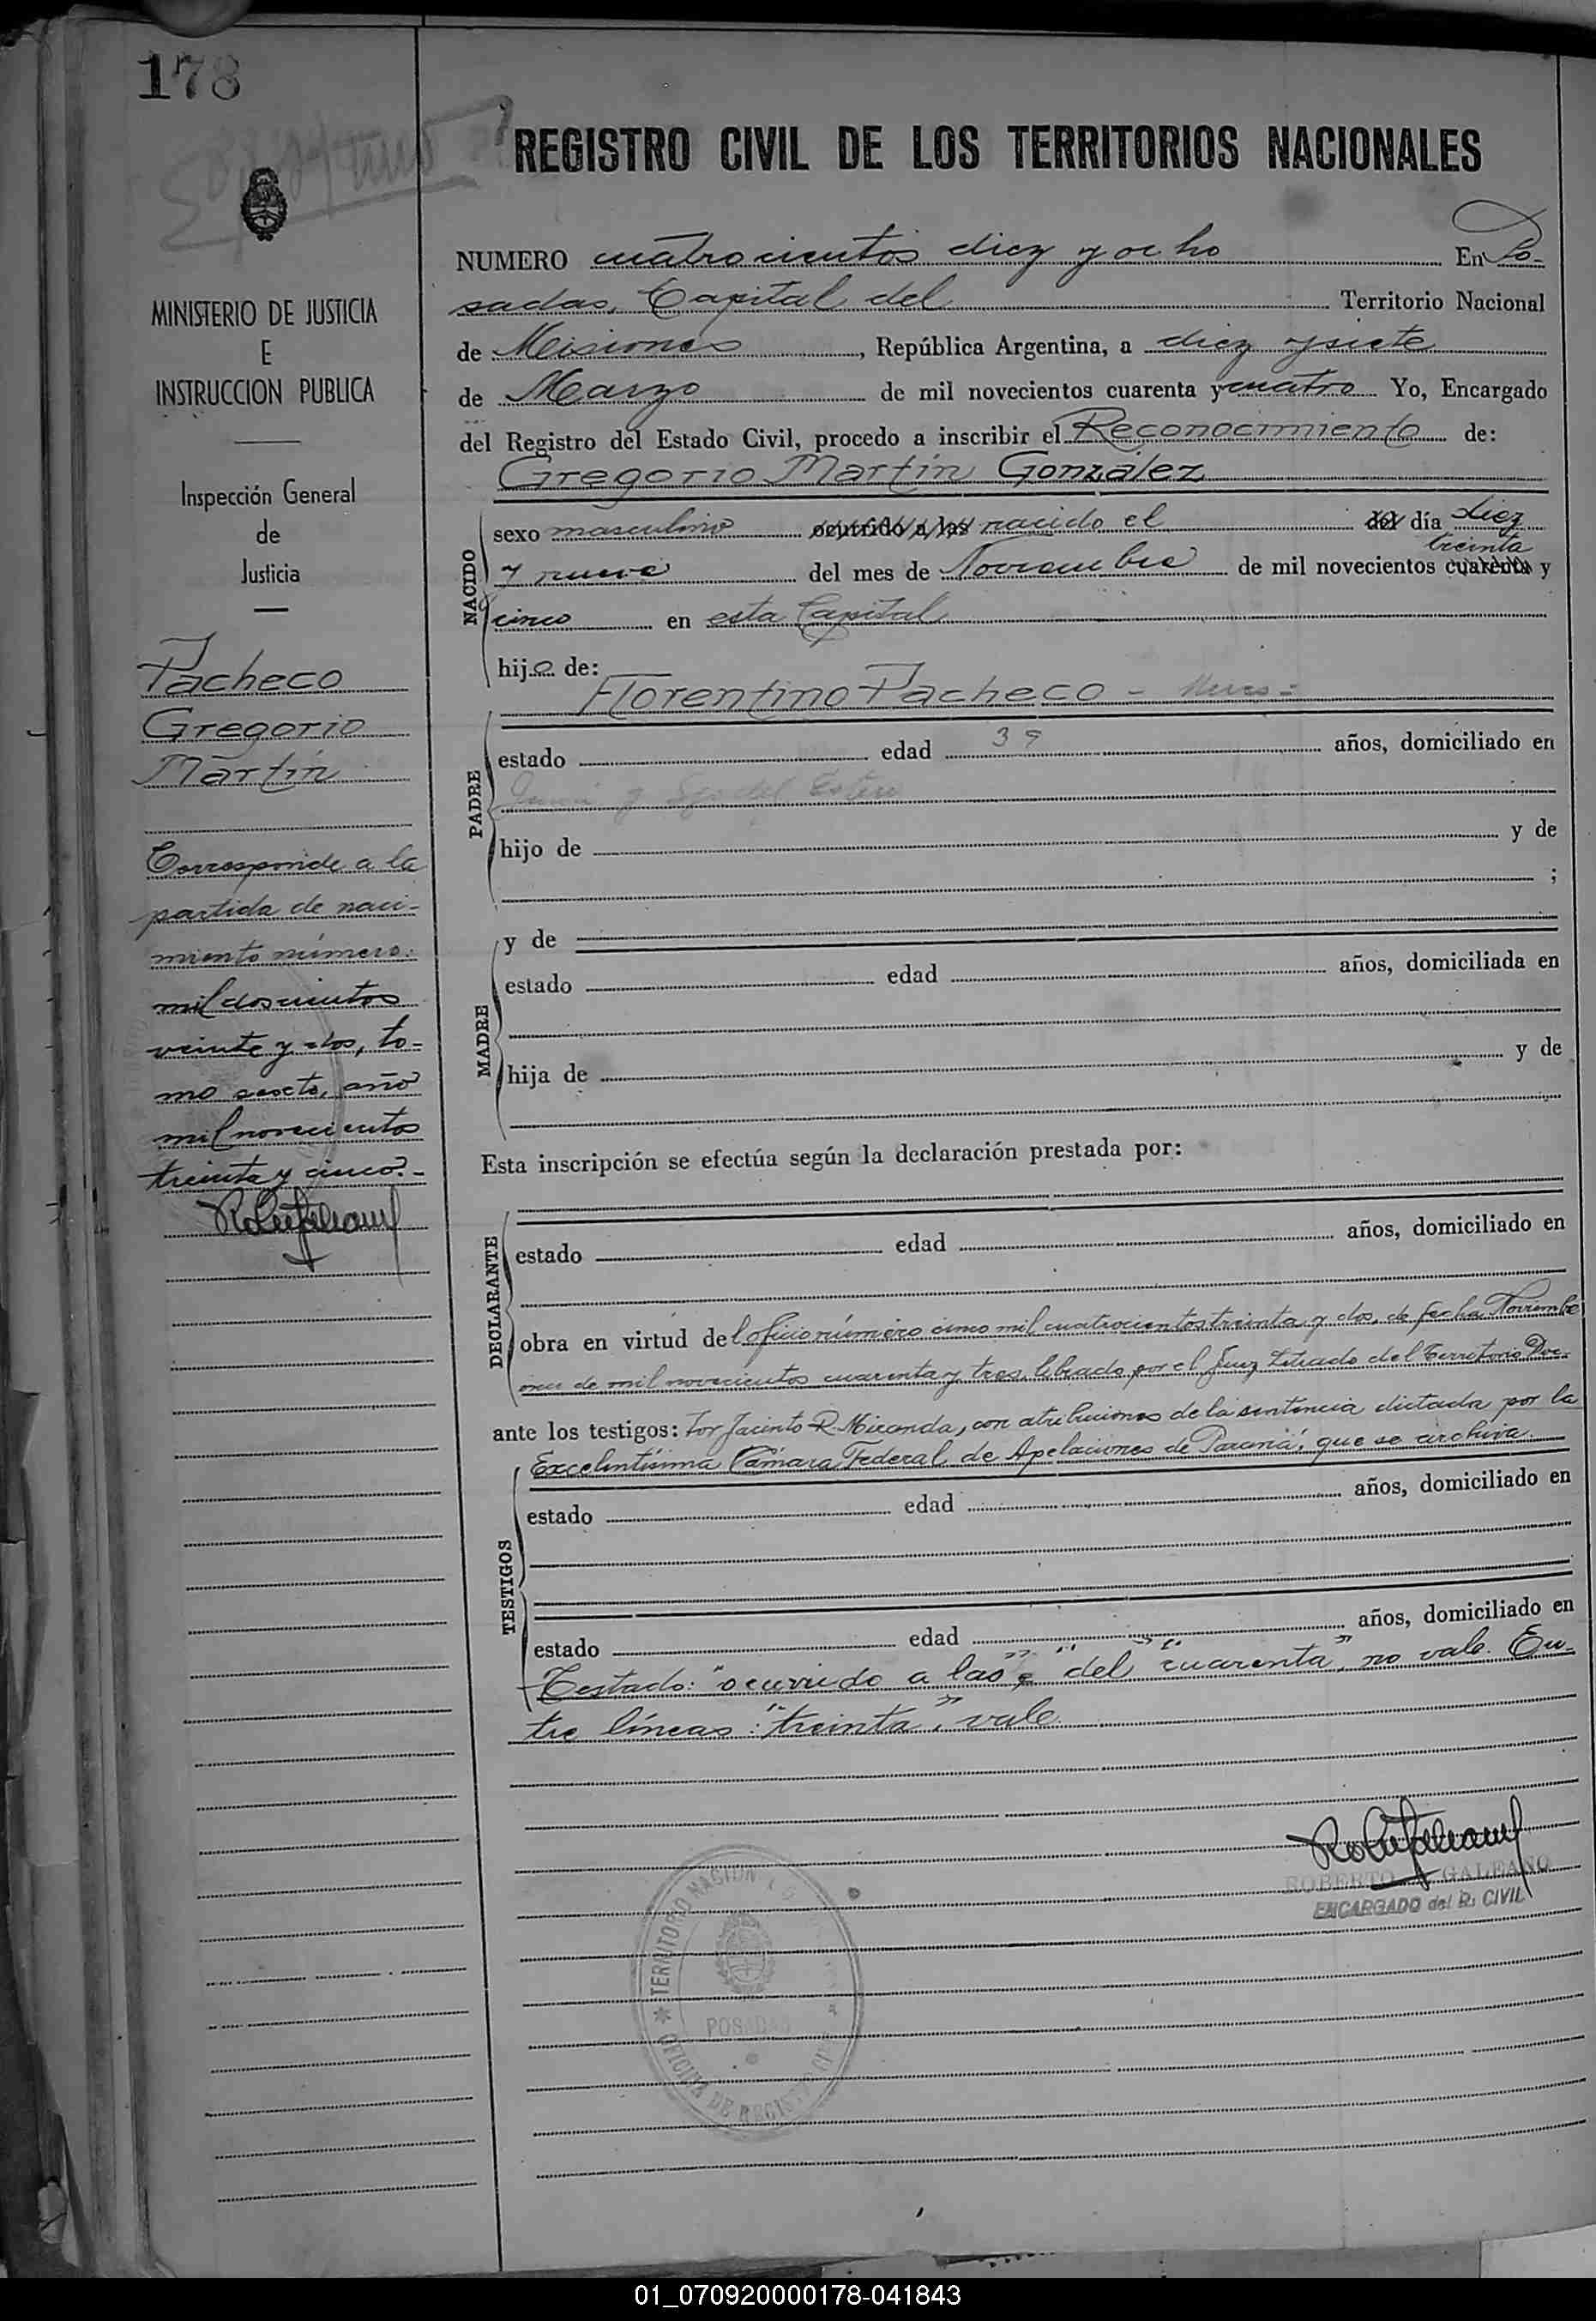 178
REGISTRO CIVIL DE LOS TERRITORIOS NACIONALES
MINISTERIO DE JUSTICIA
E
INSTRUCCION PUBLICA
Inspección General
de
Justicia
Pacheco
Gregorio
Martín
Corresponde a la
partida de naci-
miento número:
mil doscientos
veinte y dos, to-
mo sexto, año
mil novecientos
treinta y cinco.-
NUMERO cuatrocientos diez y ocho En Po-
sadas, Capital del Territorio Nacional
de Misiones, República Argentina, a diez y siete
de Marzo de mil novecientos cuarenta y cuatro Yo, Encargado
del Registro del Estado Civil, procedo a inscribir el Reconocimiento de:
Gregorio Martín González
NACIDO
sexo masculino ocurrido a las nacido el del día diez
treinta
y nueve del mes de Noviembre de mil novecientos cuarenta y
cinco en esta Capital
hijo de:
Florentino Pacheco -
PADRE
estado edad 39 años, domiciliado en
hijo de y de
;
y de
MADRE
estado edad años, domiciliada en
hija de y de
Esta inscripción se efectúa según la declaración prestada por:
DECLARANTE
estado edad años, domiciliado en
obra en virtud del oficio número cinco mil cuatrocientos treinta y dos, de fecha Noviembre
once de mil novecientos cuarenta y tres, librado por el Juez Letrado del Territorio Doc-
ante los testigos: tor Jacinto R. Miranda, con atribuciones de la sentencia dictada por la
Excelentísima Cámara Federal de Apelaciones de Paraná, que se archiva.
TESTIGOS
estado edad años, domiciliado en
estado edad años, domiciliado en
Testado: "ocurrido a las", "del", "cuarenta", no vale. En-
tre líneas: "treinta", vale.
ROBERTO GALEANO
ENCARGADO del R. CIVIL
TERRITORIO NACIONAL
POSADAS
OFICINA DE REGISTRO CIVIL
01_070920000178-041843